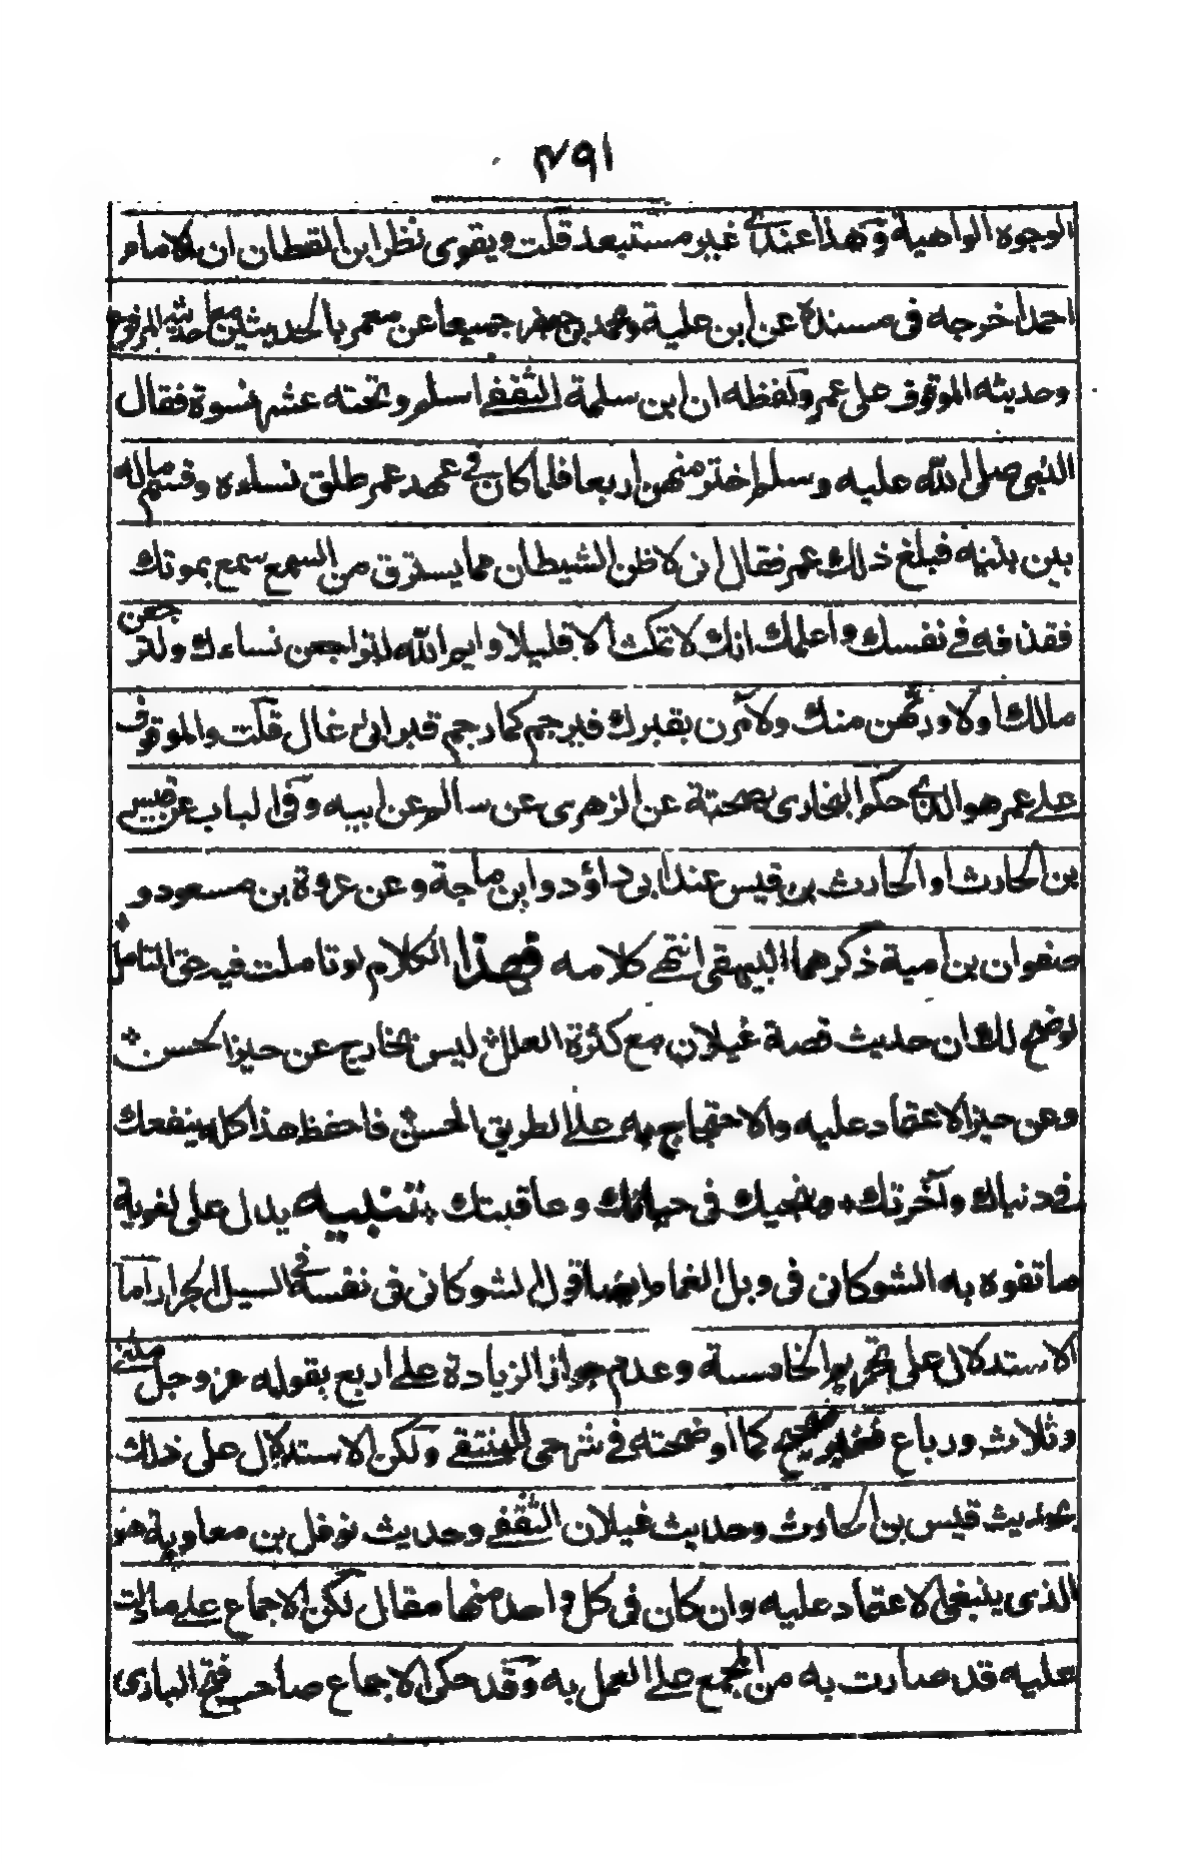 ٤٩١
الوجوه الواهية وهذا عندي غير مستبعد قلت ويقوى نظر ابن القطان ان الامام
احمد اخرجه فى مسنده عن ابن علية ومحمد بن جعفر جميعا عن معمر بالحديثين معا حديثه المرفوع
وحديثه الموقوف على عمر ولفظه ان ابن سلمة الثقفے اسلم وتحته عشر نسوة فقال
النبى صلى الله عليه وسلم اختر منهن اربعا فلما كان فے عهد عمر طلق نساءه وقسم ماله
بين بنيه فبلغ ذلك عمر فقال انى لاظن الشيطان مما يسترق من السمع سمع بموتك
فقذفه فے نفسك واعلمك انك لا تمكث الا قليلا وايم الله لتراجعن نساءك ولترجعن
مالك اولاورثهن منك ولآمرن بقبرك فيرجم كما رجم قبر ابى رغال قلت والموقوف
علے عمر هو الذي حكم البخارى بصحته عن الزهرى عن سالم عن ابيه وفى الباب عن قيس
بن الحارث او الحارث بن قيس عند ابى داؤد وابن ماجة وعن عروة بن مسعود و
صفوان بن امية ذكرهما البيهقى انتهے كلامه فهذا الكلام لو تاملت فيه حق التامل
لوضح لك ان حديث قصة غيلان مع كثرة العلل ليس بخارج عن حيز الحسن
وعن حيز الاعتماد عليه والاحتجاج به علے الطريق الحسن فاحفظ هذا كله ينفعك
فے دنياك وآخرتك وينجيك فى حياتك وعاقبتك تنبيه يدل على لغوية
ما تفوه به الشوكانى فى وبل الغمام ايضا قول الشوكانى فى نفسه فے السيل الجرار اما
الاستدلال على تحريم الخامسة وعدم جواز الزيادة علے اربع بقوله عز وجل مثنے
وثلاث ورباع فغير صحيح كما اوضحته فے شرحى للمنتقے ولكن الاستدلال على ذلك
بحديث قيس بن الحارث وحديث غيلان الثقفے وحديث نوفل بن معاوية هو
الذى ينبغى الاعتماد عليه وان كان فى كل واحد منها مقال لكن الاجماع علے ما دلت
عليه قد صارت به من المجمع علے العمل به وقد حكى الاجماع صاحب فتح البارى